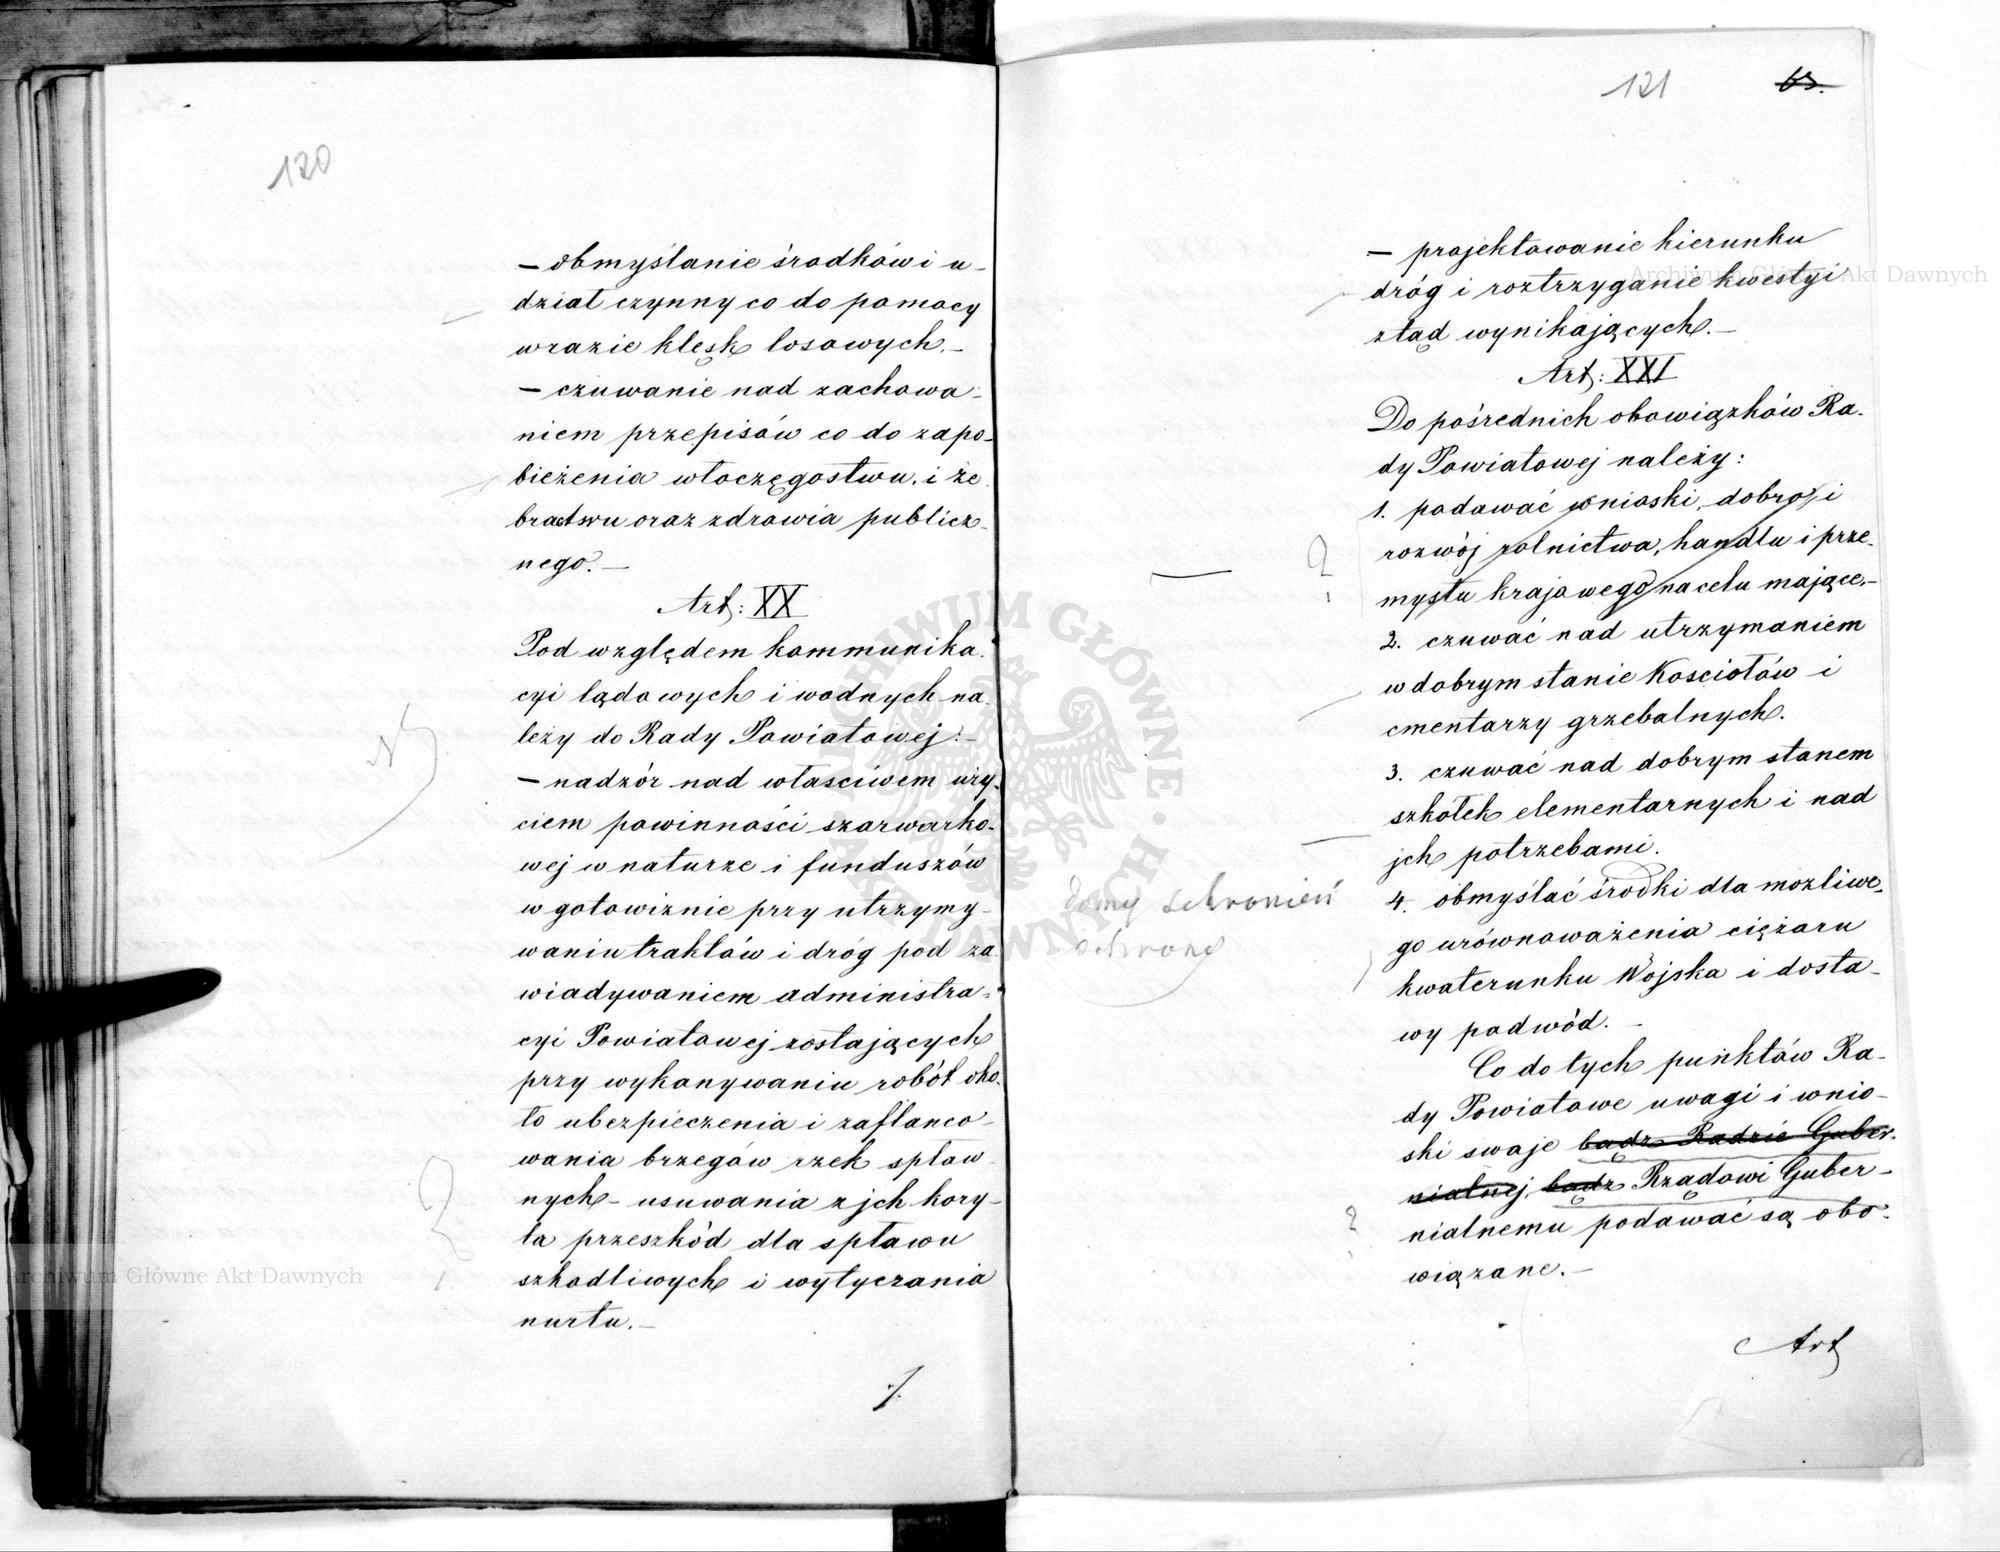 120
— obmyślanie środków i u-
dział czynny co do pomocy
wrazie klęsk losowych.—
— czuwanie nad zachowa-
niem przepisów co do zapo-
bieżenia włoczęgostwu, i że
bractwu oraz zdrowia publicz-
nego.—
Art: XX
Pod względem kommunika-
cyi lądowych i wodnych na-
leży do Rady Powiatowej:—
— nadzór nad właściwem uży-
ciem powinności szarwarko-
wej w naturze i funduszów
w gotowiznie przy utrzymy-
waniu traktów i dróg pod za
wiadywaniem administra-
cyi Powiatowej zostających
przy wykonywaniu robót oko-
ło ubezpieczenia i zaflanco-
wania brzegów rzek spław
nych - usuwania z jch kory-
ta przeszkód dla spławu
szkodliwych i wytyczania
nurtu.—
./.
121 63.
— projektowanie kierunku
dróg i roztrzyganie kwestyi
ztąd wynikających.—
Art: XXI
Do pośrednich obowiązków Ra-
dy Powiatowej należy:
1. podawać wnioski, dobro, i
rozwój rolnictwa, handlu i prze-
mysłu krajowego na celu mające.—
2. czuwać nad utrzymaniem
w dobrym stanie Kosciołów i
cmentarzy grzebalnych.
3. czuwać nad dobrym stanem
szkółek elementarnych i nad
jch potrzebami.
domy schronień
ochrony
4. obmyślać środki dla możliwe-
go urównoważenia ciężaru
kwaterunku Wojska i dosta-
wy podwód.—
Co do tych punktów Ra-
dy Powiatowe uwagi i wnio-
ski swoje bądz Radzie Guber-
nialnej, bądz Rządowi Guber-
nialnemu podawać są obo-
wiązane.—
Art
Archiwum Główne Akt Dawnych
Archiwum Główne Akt Dawnych
ARCHIWUM GŁÓWNE AKT DAWNYCH